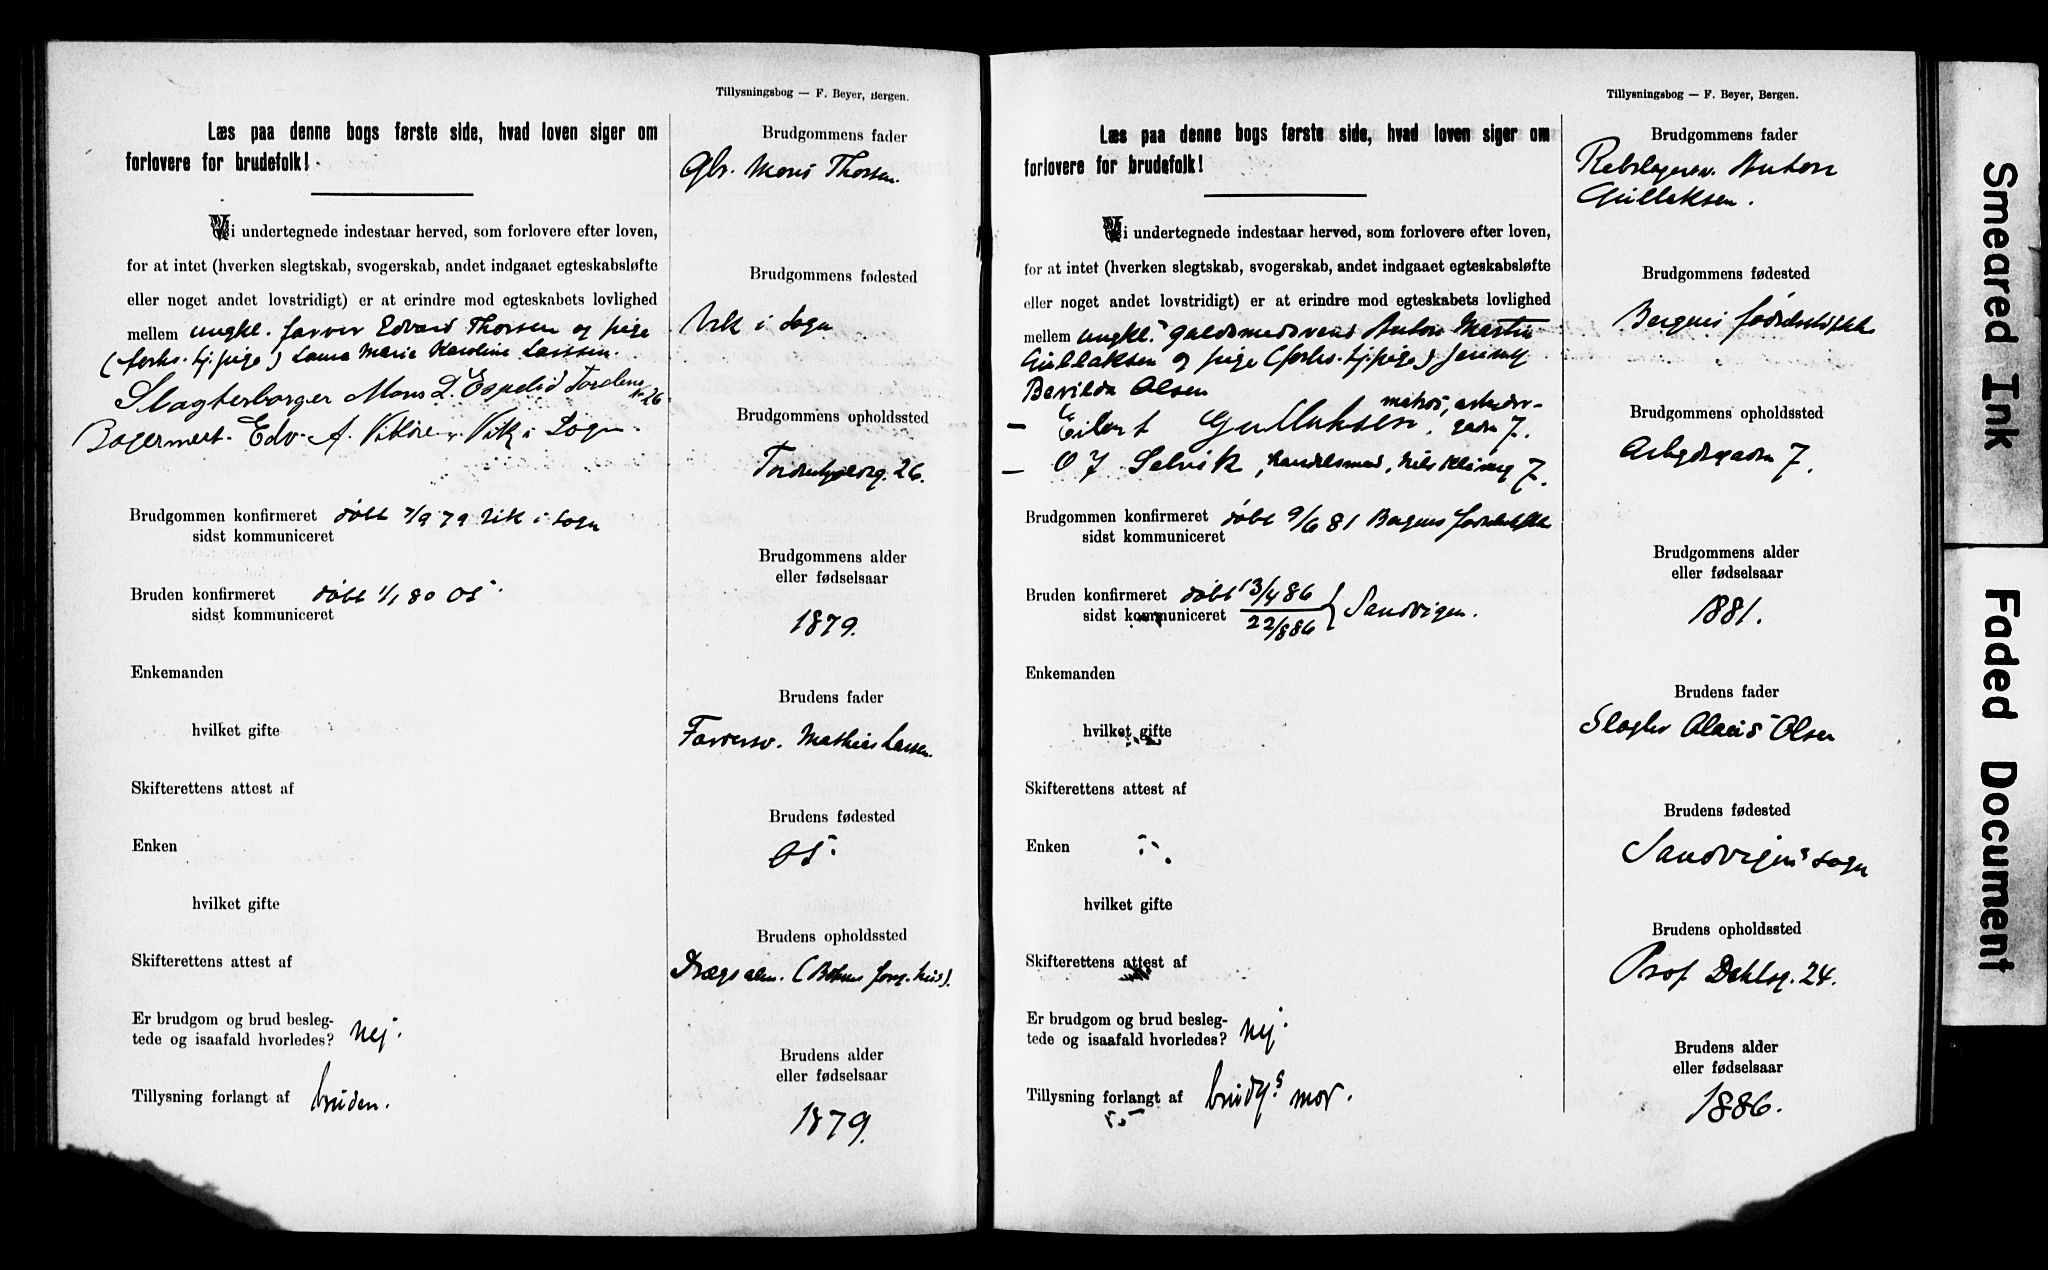 Tillysningsbog — F. Beyer, Bergen.
Læs paa denne bogs første side, hvad loven siger om
forlovere for brudefolk!
Vi undertegnede indestaar herved, som forlovere efter loven,
for at intet (hverken slegtskab, svogerskab, andet indgaaet egteskabsløfte
eller noget andet lovstridigt) er at erindre mod egteskabets lovlighed
mellem ungkl. farver Edvard Thorsen og pige
(forhv. tj.pige) Laura Marie Karoline Larssen.
Slagterborger Mons L. Espelid Tordens 26
Bagermest. Edv. A. Vikøren Vik i Sogn.
Brudgommen konfirmeret døbt 7/9 79 Vik i Sogn
sidst kommuniceret
Bruden konfirmeret døbt 1/1 80 Os.
sidst kommuniceret
Enkemanden
hvilket gifte
Skifterettens attest af
Enken
hvilket gifte
Skifterettens attest af
Er brudgom og brud beslegtede og isaafald hvorledes? nej.
Tillysning forlangt af bruden.
Brudgommens fader
Gbr. Mons Thorsen.
Brudgommens fødested
Vik i Sogn
Brudgommens opholdssted
26.
Brudgommens alder
eller fødselsaar
1879.
Brudens fader
Farversv. Mathias Larsen.
Brudens fødested
Os.
Brudens opholdssted
Drægsalm. (Bøhms forg. hus).
Brudens alder
eller fødselsaar
1879.
Tillysningsbog — F. Beyer, Bergen.
Læs paa denne bogs første side, hvad loven siger om
forlovere for brudefolk!
Vi undertegnede indestaar herved, som forlovere efter loven,
for at intet (hverken slegtskab, svogerskab, andet indgaaet egteskabsløfte
eller noget andet lovstridigt) er at erindre mod egteskabets lovlighed
mellem ungkl. guldsmedsvend Anton Martin
Gullaksen og pige (forhv. tj.pige) Jenny
Berilda Olsen
— Eilert Gullaksen, matros, arbeider-
gaden 7.
— O J Selvik, handelsmand, Nils Klimsg 7.
Brudgommen konfirmeret døbt 9/6 81 Bergens
sidst kommuniceret
Bruden konfirmeret døbt 13/4 86
sidst kommuniceret 22/8 86 } Sandvigen.
Enkemanden
hvilket gifte
Skifterettens attest af
Enken
hvilket gifte
Skifterettens attest af
Er brudgom og brud beslegtede og isaafald hvorledes? nej.
Tillysning forlangt af brudg.s mor.
Brudgommens fader
Rebslagersv. Anton
Gullaksen.
Brudgommens fødested
Bergens fødselsstift.
Brudgommens opholdssted
Arbgdsgaden 7.
Brudgommens alder
eller fødselsaar
1881.
Brudens fader
Slagter Olaus Olsen
Brudens fødested
Sandvigens sogn
Brudens opholdssted
Prof Dahlsg. 24.
Brudens alder
eller fødselsaar
1886.
Smeared Ink
Faded Document